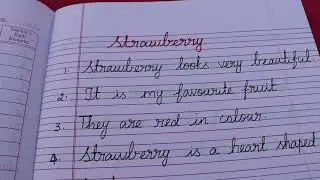 Strawberry
1. Strawberry looks very beautiful
2. It is my favourite fruit
3. They are red in colour.
4. Strawberry is a heart shaped